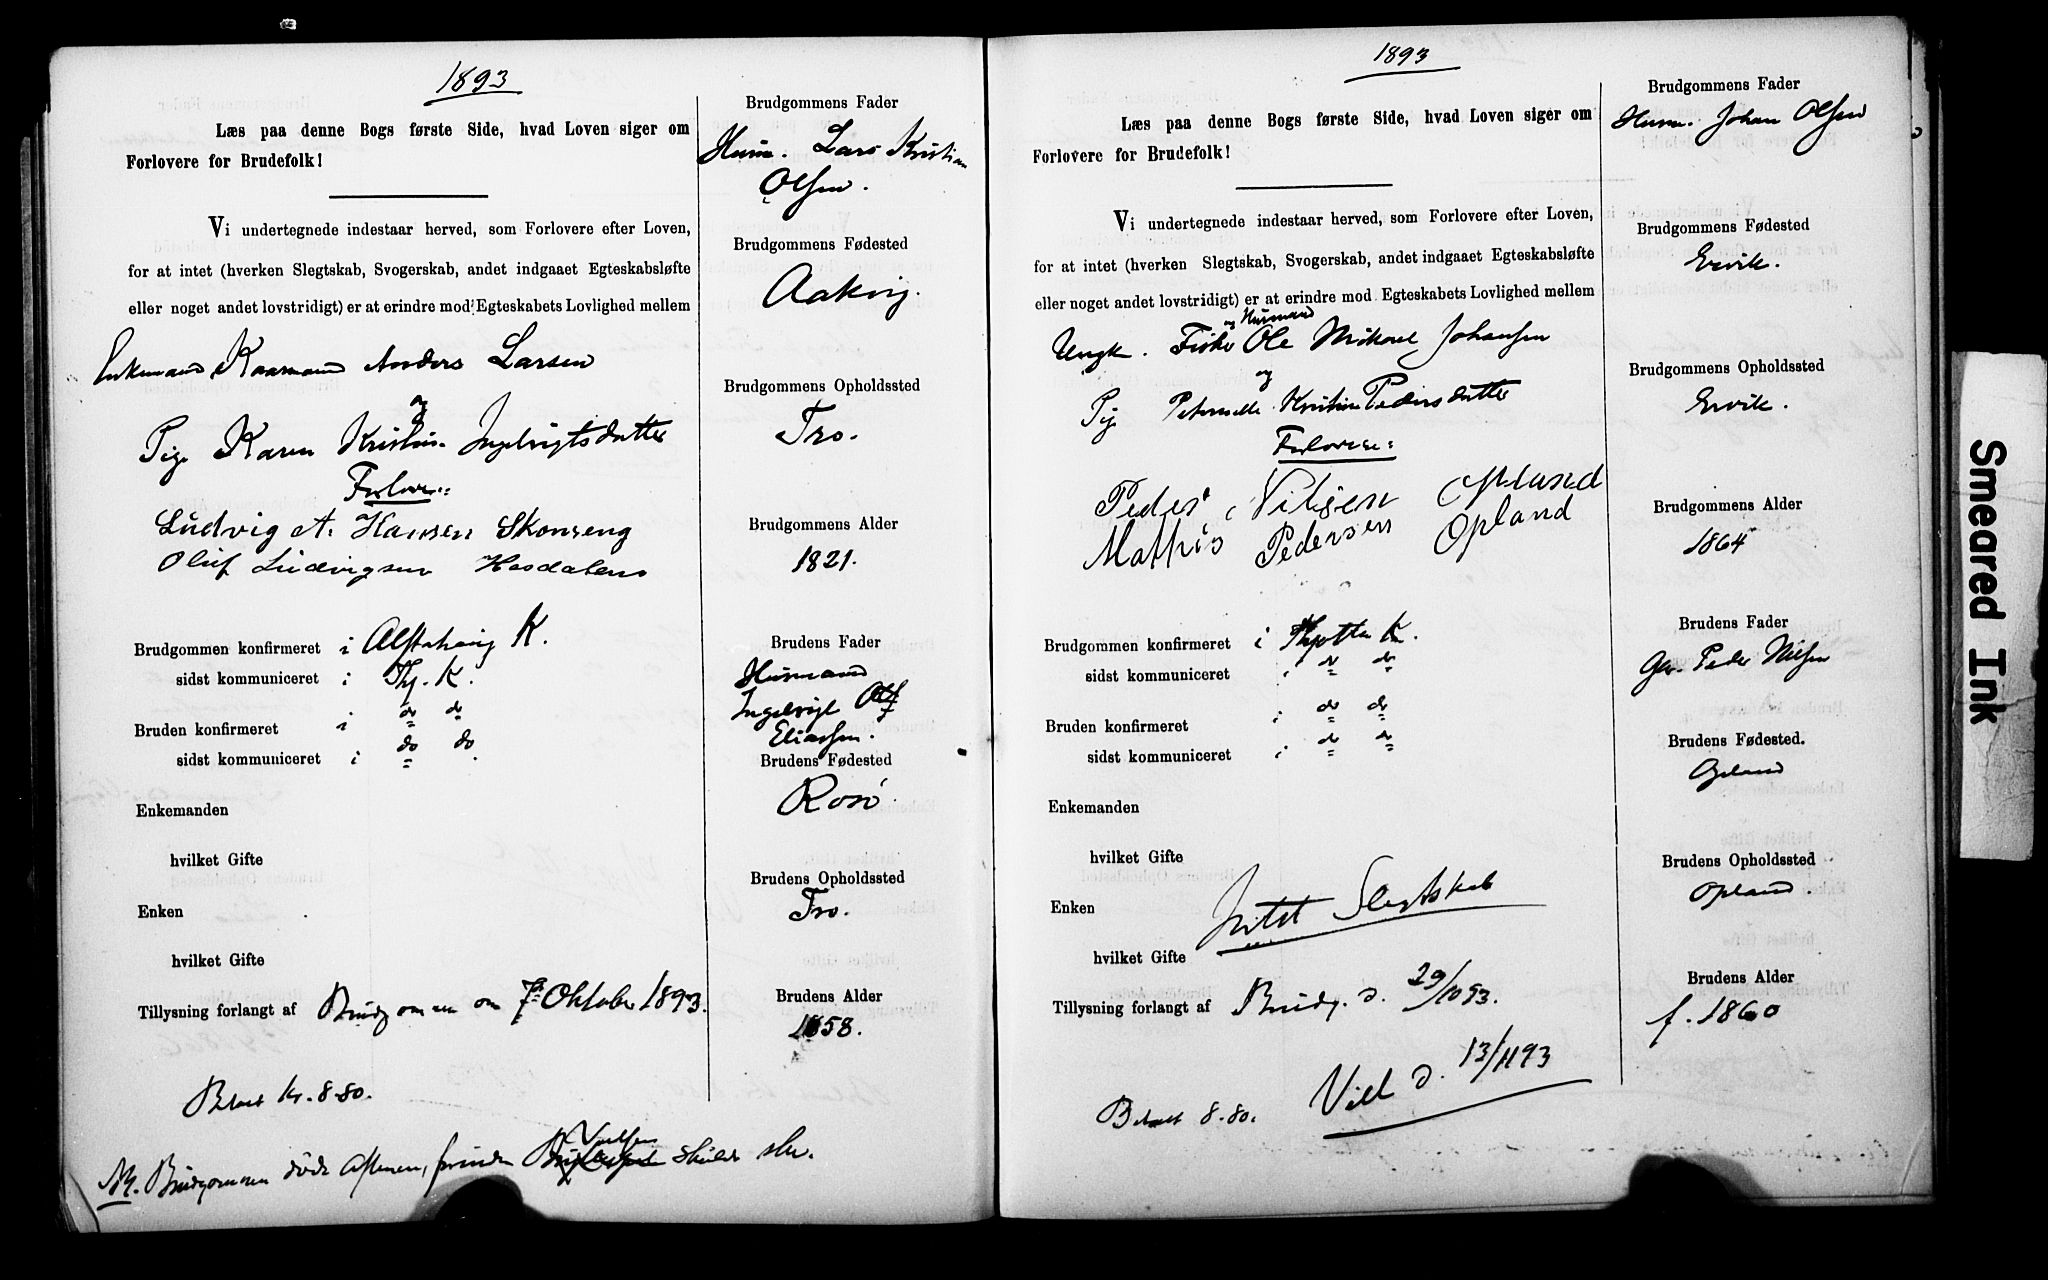 1893
Læs paa denne Bogs første Side, hvad Loven siger om
Forlovere for Brudefolk!
Vi undertegnede indestaar herved, som Forlovere efter Loven,
for at intet (hverken Slegtskab, Svogerskab, andet indgaaet Egteskabsløfte
eller noget andet lovstridigt) er at erindre mod Egteskabets Lovlighed mellem
Enkemand Kaarmand Anders Larsen
og
Pige Karen Kristine Ingebrigtsdatter
Forlovere:
Ludvig A. Hansen Skonseng
Oluf Ludvigsen Hesdalens
Brudgommen konfirmeret i Alstahaug K.
sidst kommuniceret i Thj. K.
Bruden konfirmeret i do do
sidst kommuniceret i do do.
Enkemanden
hvilket Gifte
Enken
hvilket Gifte
Tillysning forlangt af Brudgommen om 7de Oktober 1893.
Betalt Kr. 8.80.
NB. Brudgommen døde Aftenen, forinden Vielsen skulde ske.
Brudgommens Fader
Husm. Lars Kristian
Olsen.
Brudgommens Fødested
Aakvig.
Brudgommens Opholdssted
Tro.
Brudgommens Alder
1821.
Brudens Fader
Husmand
Ingebrigt Olf
Eliassen.
Brudens Fødested
Rosø
Brudens Opholdssted
Tro.
Brudens Alder
1858.
1893
Læs paa denne Bogs første Side, hvad Loven siger om
Forlovere for Brudefolk!
Vi undertegnede indestaar herved, som Forlovere efter Loven,
for at intet (hverken Slegtskab, Svogerskab, andet indgaaet Egteskabsløfte
eller noget andet lovstridigt) er at erindre mod Egteskabets Lovlighed mellem
og Husmand
Ungk. Fisker Ole Mikael Johansen
og
Pige Peternelle Kristine Pedersdatter
Forlovere:
Peder Nilsen Opland
Mathis Pedersen Opland
Brudgommen konfirmeret i Thjøtta K.
sidst kommuniceret i do do
Bruden konfirmeret i do do
sidst kommuniceret i do do
Enkemanden
hvilket Gifte
Enken
Intet Slegtskab
hvilket Gifte
Tillysning forlangt af Brudg. d. 29/10 93.
Viet d. 13/11 93
Betalt 8.80.
Brudgommens Fader
Husm. Johan Olsen
Brudgommens Fødested
Ervik.
Brudgommens Opholdssted
Ervik.
Brudgommens Alder
1864
Brudens Fader
Gbr. Peder Nilsen
Brudens Fødested.
Opland
Brudens Opholdssted
Opland.
Brudens Alder
f. 1860
Smeared Ink